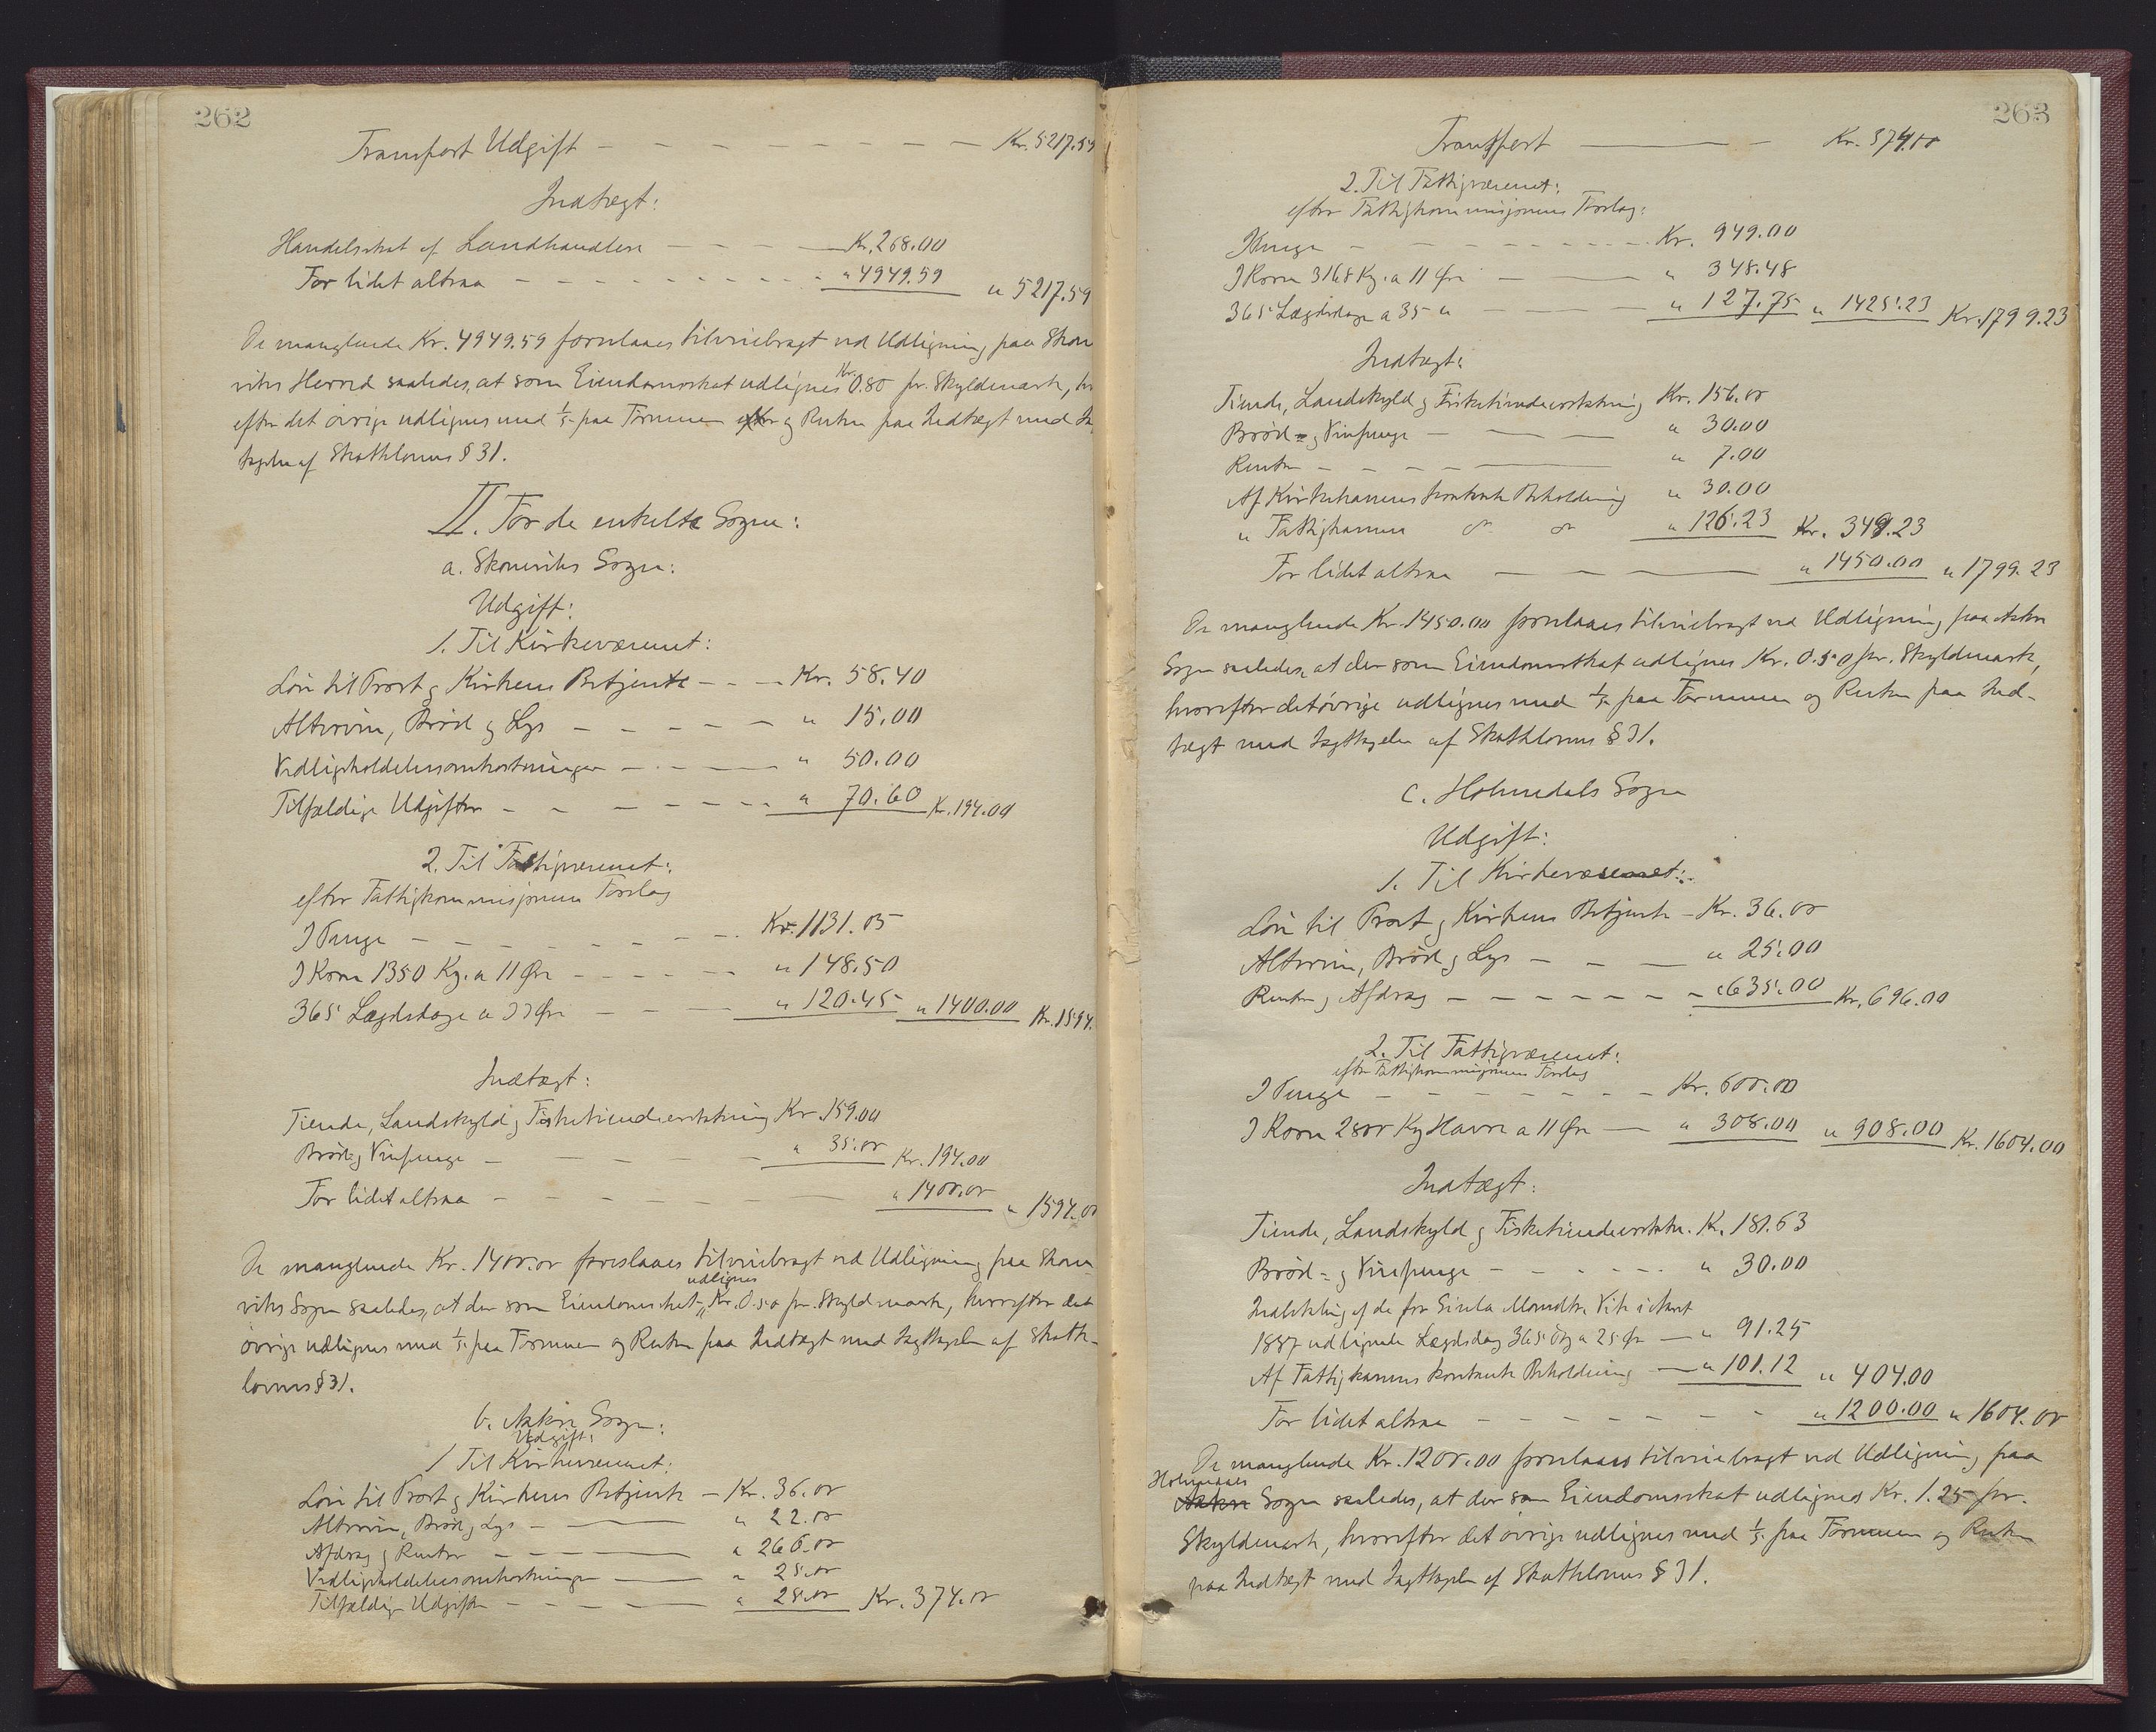 262
Transport Udgift — Kr. 5217.59
Indtægt:
Handelsskat af Landhandlere — Kr. 268.00
For lidet altsaa — " 4949.59 " 5217.59
De manglende Kr. 4949.59 foreslaaes tilveiebragt ved Udligning paa Skone
viks Herred saaledes, at som Eiendomsskat udlignes Kr. 0.80 pr. Skyldmark, hv
efter det øvrige udlignes med 1/5 paa Formuen og Resten paa Indtægt med Ia
tagelse af Skattelovens § 31.
II. For de enkelte Sogne:
a. Skoneviks Sogn:
Udgift:
1. Til Kirkevæsenet:
Løn til Prost og Kirkens Betjente — Kr. 58.40
Altervin, Brød og Lys — " 15.00
Vedligeholdelsesomkostninger — " 50.00
Tilfældige Udgifter — " 70.60 Kr. 194.00
2. Til Fattigvæsenet:
efter Fattigkommisjonens Forslag
I Penge — Kr. 1131.05
I Korn 1350 Kg. a 11 Øre — " 148.50
365 Lægdsdage a 33 Øre — " 120.45 " 1400.00 Kr. 1594.
Indtægt:
Tiende, Landskyld og Fisketiendeerstatning Kr. 159.00
Brød og Vinpenge — " 35.00 Kr. 194.00
For lidet altsaa — " 1400.00 " 1594.00
De manglende Kr. 1400.00 foreslaaes tilveiebragt ved Udligning paa Skone
viks Sogn saaledes, at der som Eiendomsskat udlignes Kr. 0.50 pr. Skyldmark, hvorefter det
øvrige udlignes med 1/5 paa Formuen og Resten paa Indtægt med Iagttagelse af Skatte-
lovens § 31.
b. Aakre Sogn:
Udgift:
1 Til Kirkevæsenet:
Løn til Prost og Kirkens Betjente — Kr. 36.00
Altervin, Brød og Lys — " 22.00
Afdrag og Renter — " 266.00
Vedligeholdelsesomkostninger — " 25.00
Tilfældige Udgifter — " 25.00 Kr. 374.00
263
Transport — Kr. 374.00
2. Til Fattigvæsenet:
efter Fattigkommisjonens Forslag:
I Penge — Kr. 949.00
I Korn 3168 Kg. a 11 Øre — " 348.48
365 Lægdsdage a 35 " — " 127.75 " 1425.23 Kr. 1799.23
Indtægt:
Tiende, Landskyld og Fisketiendeerstatning Kr. 156.00
Brød- og Vinpenge — " 30.00
Renter — " 7.00
Af Kirkekassens kontante Beholdning " 30.00
" Fattigkassens do do " 126.23 Kr. 349.23
For lidet altsaa — " 1450.00 " 1799.23
De manglende Kr. 1450.00 foreslaaes tilveiebragt ved Udligning paa Aakre
Sogn saaledes, at der som Eiendomsskat udlignes Kr. 0.50 pr. Skyldmark,
hvorefter det øvrige udlignes med 1/5 paa Formuen og Resten paa Ind-
tægt med Iagttagelse af Skattelovens § 31.
c. Holmedals Sogn
Udgift:
1. Til Kirkevæsenet:
Løn til Prost og Kirkens Betjente — Kr. 36.00
Altervin, Brød og Lys — " 25.00
Renter og Afdrag — " 635.00 Kr. 696.00
2. Til Fattigvæsenet:
efter Fattigkommisjonens Forslag
I Penge — Kr. 600.00
I Korn 2800 Kg Havre a 11 Øre — " 308.00 " 908.00 Kr. 1604.00
Indtægt:
Tiende, Landskyld og Fisketiendeerstatn. Kr. 181.63
Brød- og Vinpenge — " 30.00
Indbetaling af de for
1887 udlignede Lægdsdag 365 Dg a 25 Ør — " 91.25
Af Fattigkassens kontante Beholdning — " 101.12 " 404.00
For lidet altsaa — " 1200.00 " 1604.00
De manglende Kr. 1200.00 foreslaaes tilveiebragt ved Udligning paa
Holmedals Sogn saaledes, at der som Eiendomsskat udlignes Kr. 1.25 pr.
Skyldmark, hvorefter det øvrige udlignes med 1/5 paa Formuen og Resten
paa Indtægt med Iagttagelse af Skattelovens § 31.